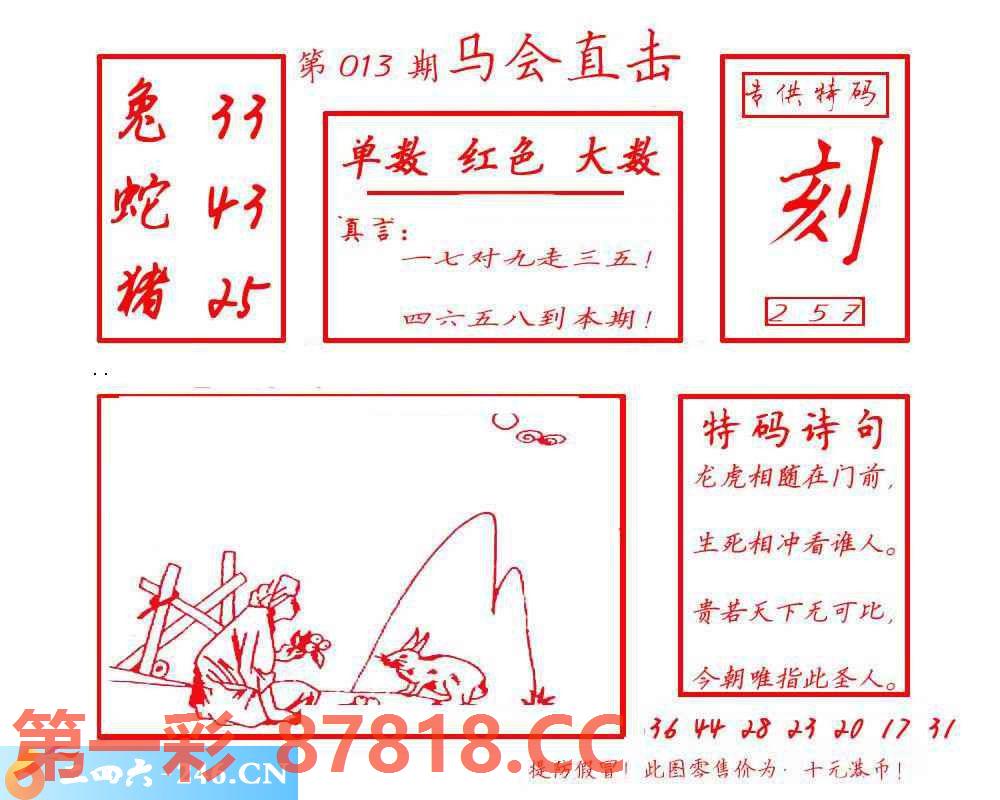 第 013 期 马会直击
兔 33
蛇 43
猪 25
单数 红色 大数
真言：
一七对九走三五！
四六五八到本期！
专供特码
刻
2 5 7
特码诗句
龙虎相随在门前，
生死相冲看谁人。
贵若天下无可比，
今朝唯指此圣人。
36 44 28 23 20 17 31
第一彩 87818.CC
二四六-246.CN
提防假冒！此图零售价为·十元港币！